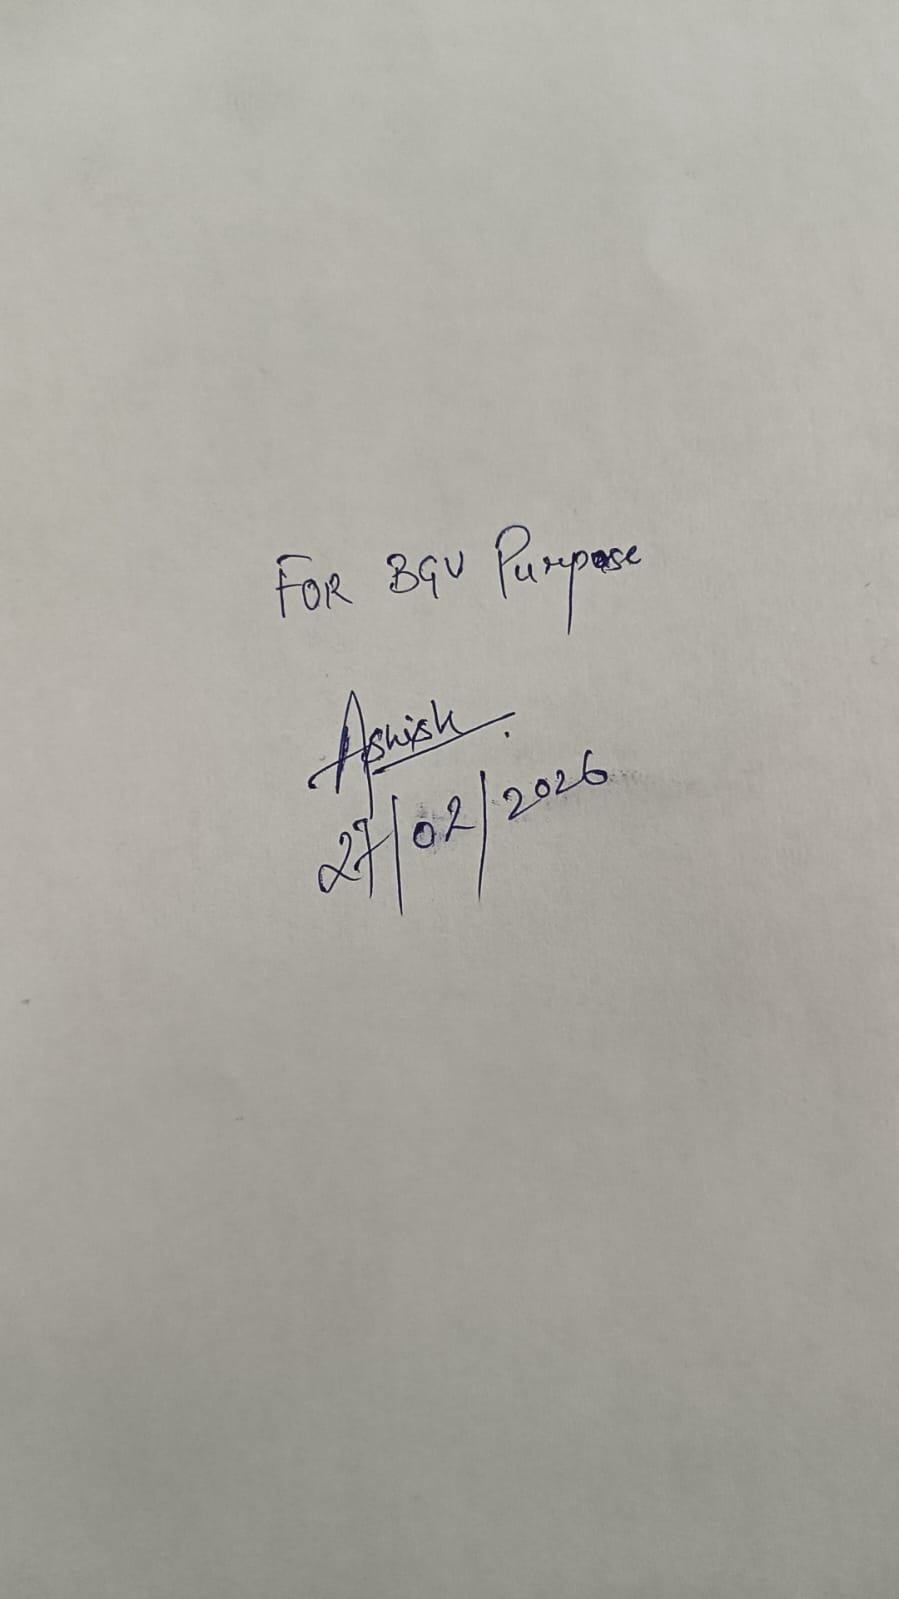 FOR BGV Purpose
Ashish.
27/02/2026